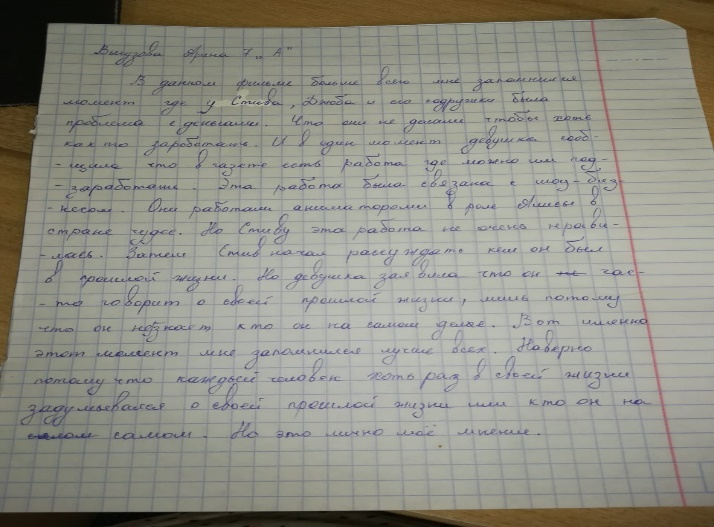 Арина 7 „А"
В данном фильме больше всего мне запомнился
момент где у Стива, Джоба и его подружки была
проблема с деньгами. Что они не делали чтобы хоть
как то заработать. И в один момент девушка сооб-
-щила что в газете есть работа где можно им под-
-заработать. Эта работа была связана с шоу-биз-
-несом. Они работали аниматорами в роле Алисы в
стране чудес. Но Стиву эта работа не очень нрави-
-лась. Затем Стив начал рассуждать кем он был
в прошлой жизни. Но девушка заявила что он не час-
-то говорит о своей прошлой жизни, лишь потому
что он не знает кто он на самом деле. Вот именно
этот момент мне запомнился лучше всех. Наверно
потому что каждый человек хоть раз в своей жизни
задумывался о своей прошлой жизни или кто он на
самом. Но это лично моё мнение.